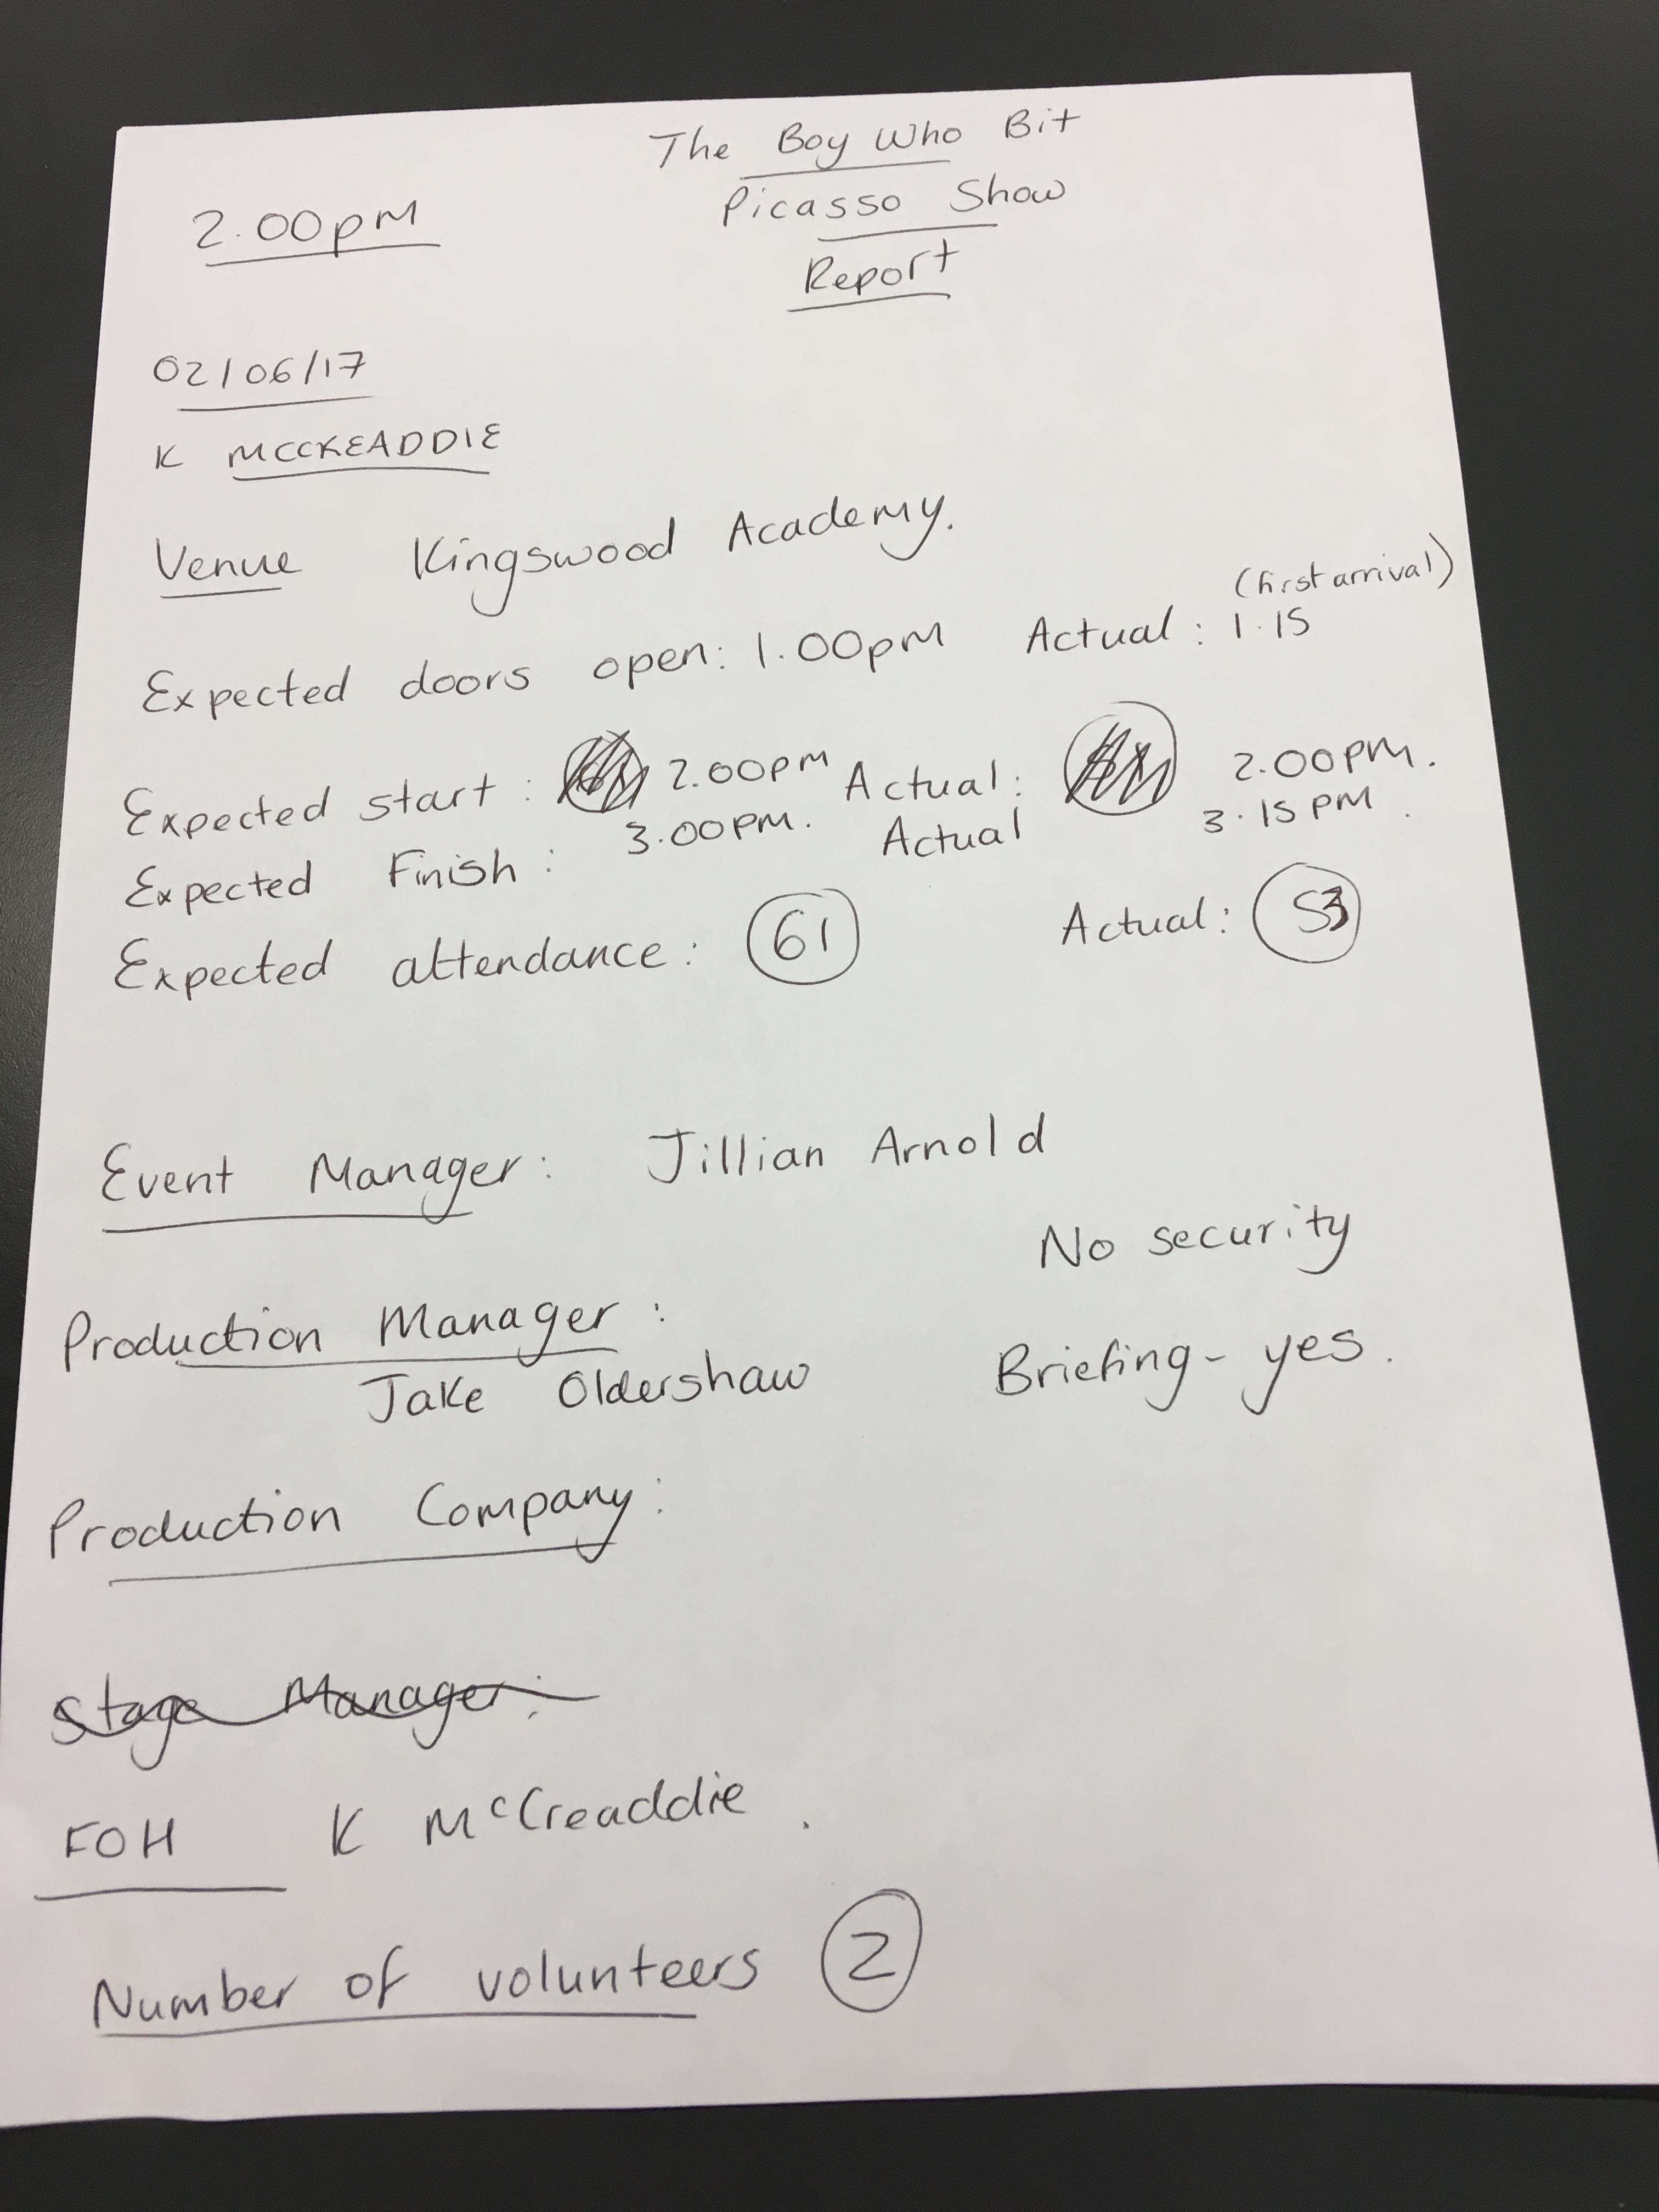 The Boy Who Bit
Picasso Show
Report
2.00pm
02/06/17
K MCCREADDIE
Venue Kingswood Academy.
(first arrival)
Expected doors open: 1.00pm Actual: 1.15
Expected start: 2.00pm Actual: 2.00pm.
Expected Finish: 3.00pm. Actual 3.15pm.
Expected attendance: 61 Actual: 53
Event Manager: Jillian Arnold
No security
Production Manager:
Jake Oldershaw Briefing - yes.
Production Company:
Stage Manager:
FOH K McCreaddie.
Number of volunteers 2